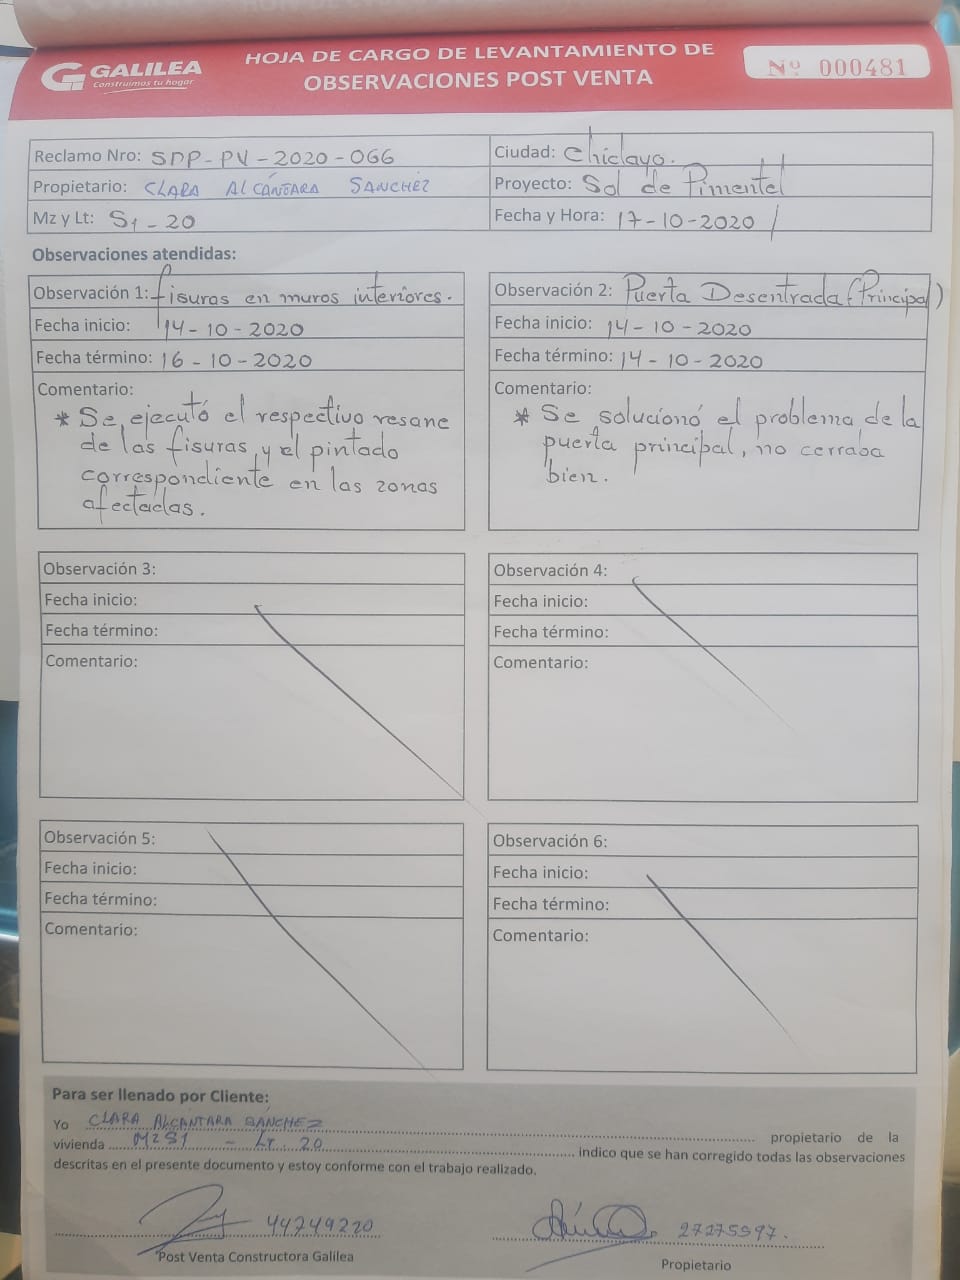 GALILEA
Construimos tu hogar
HOJA DE CARGO DE LEVANTAMIENTO DE
OBSERVACIONES POST VENTA
Nº 000481
Reclamo Nro: SDP-PV-2020-066
Ciudad: Chiclayo.
Propietario: CLARA ALCÁNTARA SANCHEZ
Proyecto: Sol de Pimentel
Mz y Lt: S1-20
Fecha y Hora: 17-10-2020 /
Observaciones atendidas:
Observación 1: fisuras en muros interiores.
Fecha inicio: 14-10-2020
Fecha término: 16-10-2020
Comentario:
* Se ejecutó el respectivo resane
de las fisuras, y el pintado
correspondiente en las zonas
afectadas.
Observación 2: Puerta Desentrada (Principal)
Fecha inicio: 14-10-2020
Fecha término: 14-10-2020
Comentario:
* Se solucionó el problema de la
puerta principal, no cerraba
bien.
Observación 3:
Fecha inicio:
Fecha término:
Comentario:
Observación 4:
Fecha inicio:
Fecha término:
Comentario:
Observación 5:
Fecha inicio:
Fecha término:
Comentario:
Observación 6:
Fecha inicio:
Fecha término:
Comentario:
Para ser llenado por Cliente:
Yo CLARA ALCÁNTARA SÁNCHEZ propietario de la
vivienda MZ S1 - LT. 20 indico que se han corregido todas las observaciones
descritas en el presente documento y estoy conforme con el trabajo realizado.
44749220
27275997.
Post Venta Constructora Galilea
Propietario